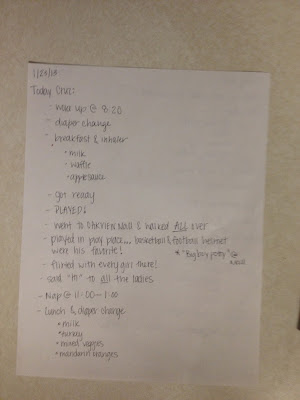 1/28/13
Today Cruz:
- woke up @ 8:20
- diaper change
- breakfast & inhaler
• milk
• waffle
• applesauce
- got ready
- PLAYED!
- went to Oakview Mall & walked ALL over
- played in play place... basketball & football helmet
were his favorite!
* "Big boy potty" @
- flirted with every girl there!
- said "hi" to all the ladies
- Nap @ 11:00-1:00
- Lunch & diaper change
• milk
• turkey
• mixed veggies
• mandarin oranges